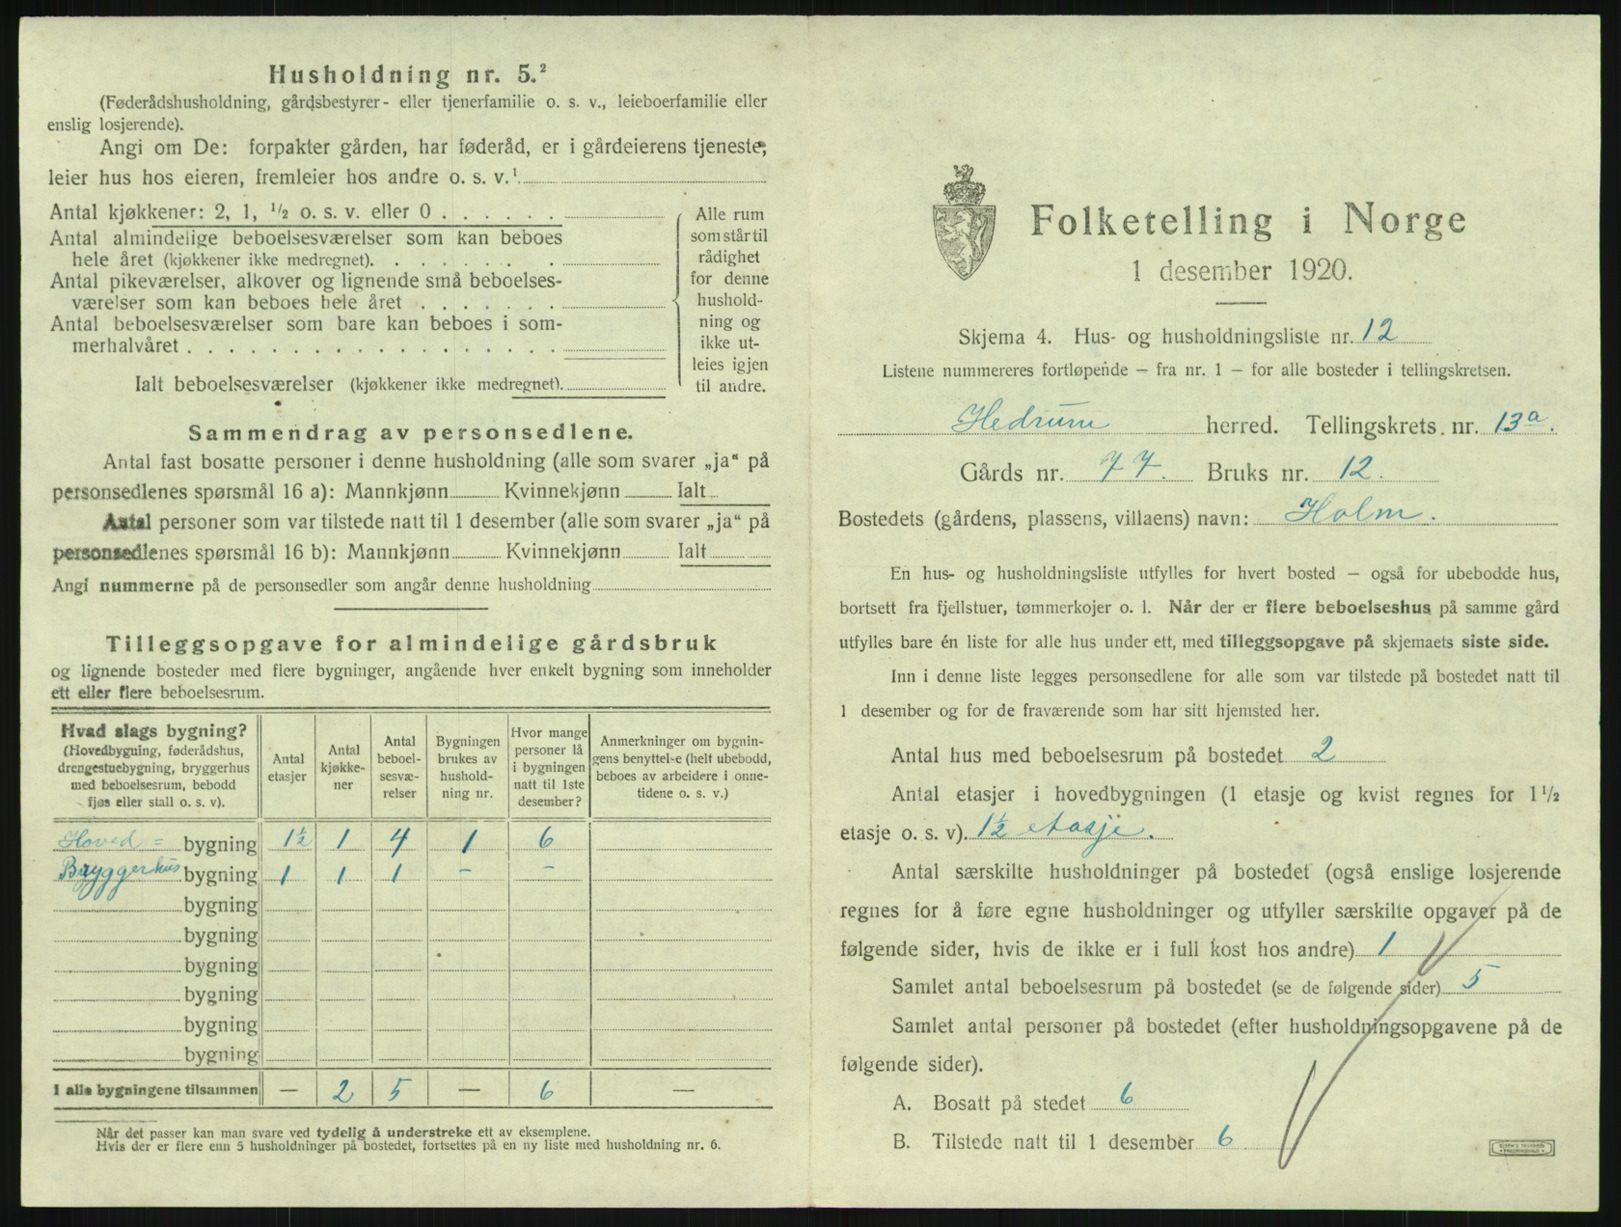 Husholdning nr. 5.²
(Føderådshusholdning, gårdsbestyrer- eller tjenerfamilie o. s. v., leieboerfamilie eller
enslig losjerende).
Angi om De: forpakter gården, har føderåd, er i gårdeierens tjeneste,
leier hus hos eieren, fremleier hos andre o. s. v.¹
Antal kjøkkener: 2, 1, ½ o. s. v. eller 0 . . . . . .
Antal almindelige beboelsesværelser som kan beboes
hele året (kjøkkener ikke medregnet). . . . . . . .
Antal pikeværelser, alkover og lignende små beboelses-
værelser som kan beboes hele året . . . . . . .
Antal beboelsesværelser som bare kan beboes i som-
merhalvåret . . . . . . . . . . . . . . . . . .
Ialt beboelsesværelser (kjøkkener ikke medregnet).
Alle rum
som står til
rådighet
for denne
hushold-
ning og
ikke ut-
leies igjen
til andre.
Sammendrag av personsedlene.
Antal fast bosatte personer i denne husholdning (alle som svarer „ja“ på
personsedlenes spørsmål 16 a): Mannkjønn Kvinnekjønn Ialt
Antal personer som var tilstede natt til 1 desember (alle som svarer „ja“ på
personsedlenes spørsmål 16 b): Mannkjønn Kvinnekjønn Ialt
Angi nummerne på de personsedler som angår denne husholdning
Tilleggsopgave for almindelige gårdsbruk
og lignende bosteder med flere bygninger, angående hver enkelt bygning som inneholder
ett eller flere beboelsesrum.
Hvad slags bygning?
(Hovedbygning, føderådshus,
drengestuebygning, bryggerhus
med beboelsesrum, bebodd
fjøs eller stall o. s. v).
Antal
etasjer
Antal
kjøkke-
ner
Antal
beboel-
sesvæ-
relser
Bygningen
brukes av
hushold-
ning nr.
Hvor mange
personer lå
i bygningen
natt til 1ste
desember?
Anmerkninger om bygnin-
gens benyttelse (helt ubebodd,
beboes av arbeidere i onne-
tidene o. s. v.)
Hoved= bygning 1½ 1 4 1 6
Bryggerhus bygning 1 1 1 - -
bygning
bygning
bygning
bygning
bygning
bygning
I alle bygningene tilsammen — 2 5 — 6 —
Når det passer kan man svare ved tydelig å understreke ett av eksemplene.
Hvis der er flere enn 5 husholdninger på bostedet, fortsettes på en ny liste med husholdning nr. 6.
Folketelling i Norge
1 desember 1920.
Skjema 4. Hus- og husholdningsliste nr. 12
Listene nummereres fortløpende — fra nr. 1 — for alle bosteder i tellingskretsen.
Hedrum herred. Tellingskrets. nr. 13a.
Gårds nr. 77. Bruks nr. 12.
Bostedets (gårdens, plassens, villaens) navn: Holm.
En hus- og husholdningsliste utfylles for hvert bosted — også for ubebodde hus,
bortsett fra fjellstuer, tømmerkojer o. l. Når der er flere beboelseshus på samme gård
utfylles bare én liste for alle hus under ett, med tilleggsopgave på skjemaets siste side.
Inn i denne liste legges personsedlene for alle som var tilstede på bostedet natt til
1 desember og for de fraværende som har sitt hjemsted her.
Antal hus med beboelsesrum på bostedet 2
Antal etasjer i hovedbygningen (1 etasje og kvist regnes for 1½
etasje o. s. v). 1½ etasje.
Antal særskilte husholdninger på bostedet (også enslige losjerende
regnes for å føre egne husholdninger og utfyller særskilte opgaver på de
følgende sider, hvis de ikke er i full kost hos andre) 1
Samlet antal beboelsesrum på bostedet (se de følgende sider) 5
Samlet antal personer på bostedet (efter husholdningsopgavene på de
følgende sider).
A. Bosatt på stedet 6
B. Tilstede natt til 1 desember 6